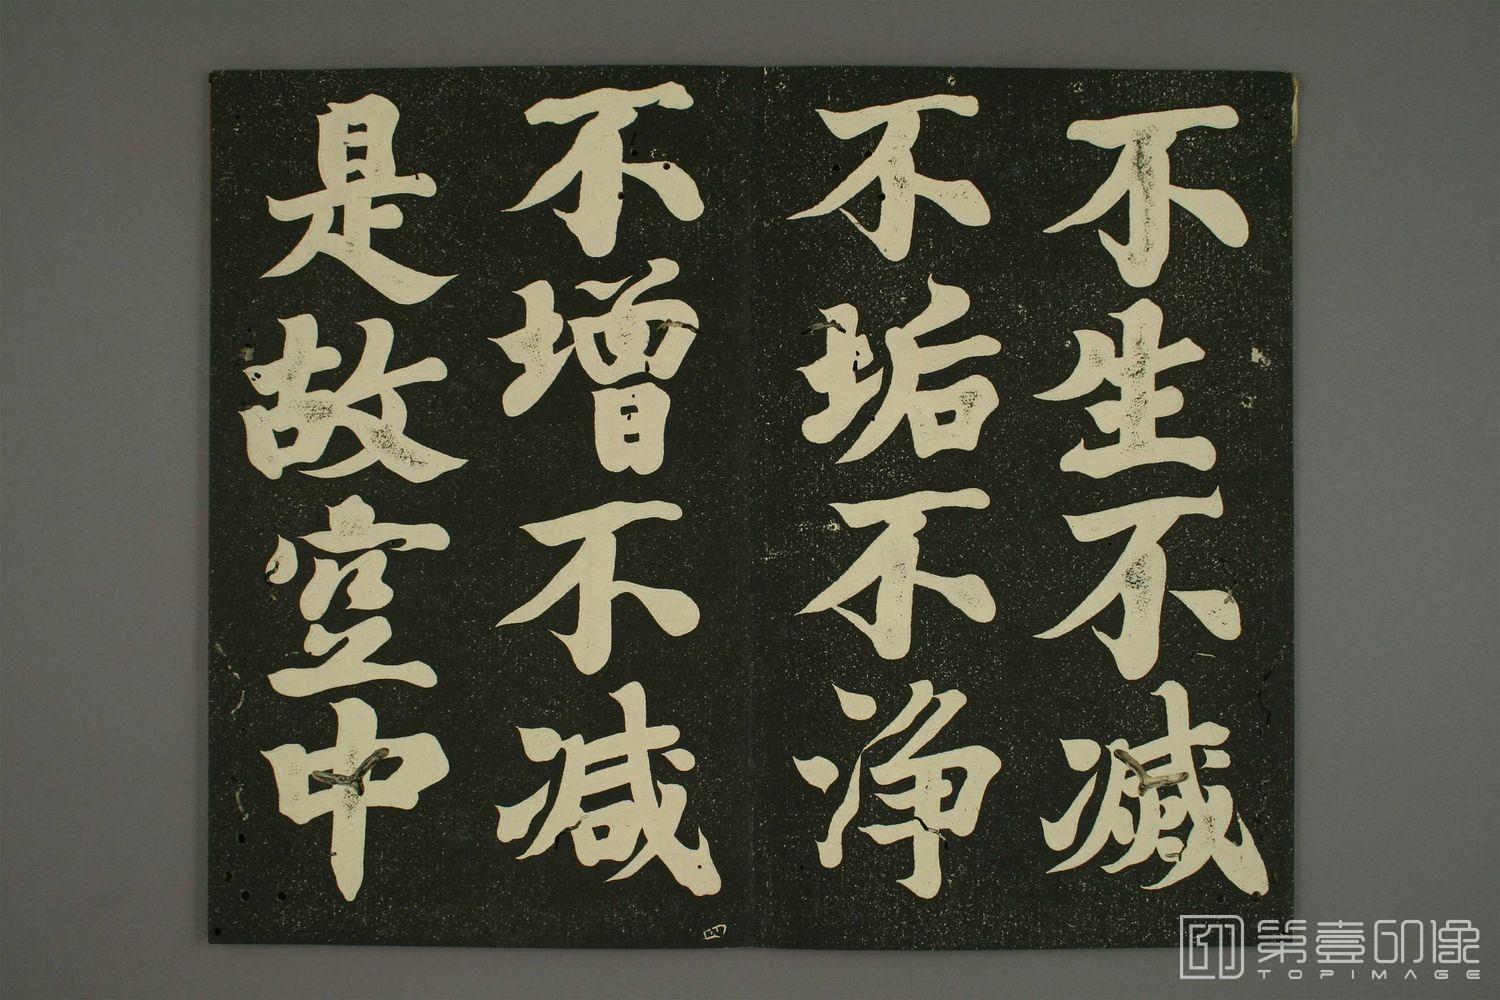 不生不滅
不垢不淨
不增不減
是故空中
第壹印像
TOPIMAGE